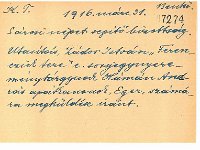 K. T. 1916. márc. 31. Benkő.
17274
Sárosi népet segítő bizottság.
Utasítás, Zádor István „Feren-
ciek tere" c. sorsjegynyere-
ménytárgynak Kámán And-
rás apátkanonok, Eger, számá-
ra megküldése iránt.